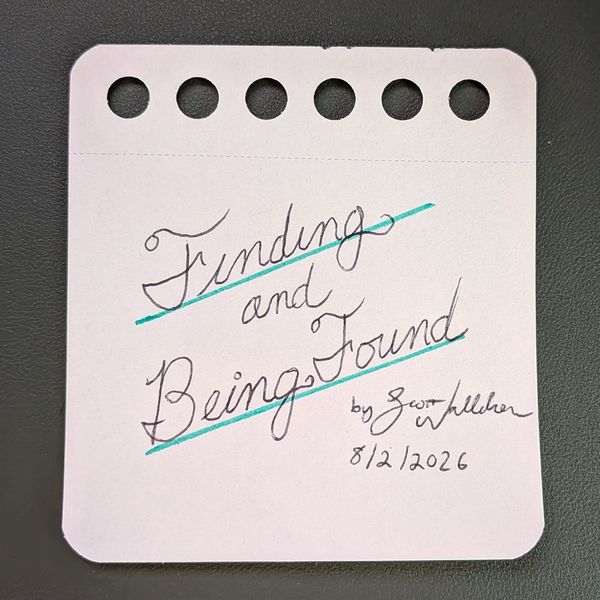 Finding
and
Being Found
by Scott
8/2/2026